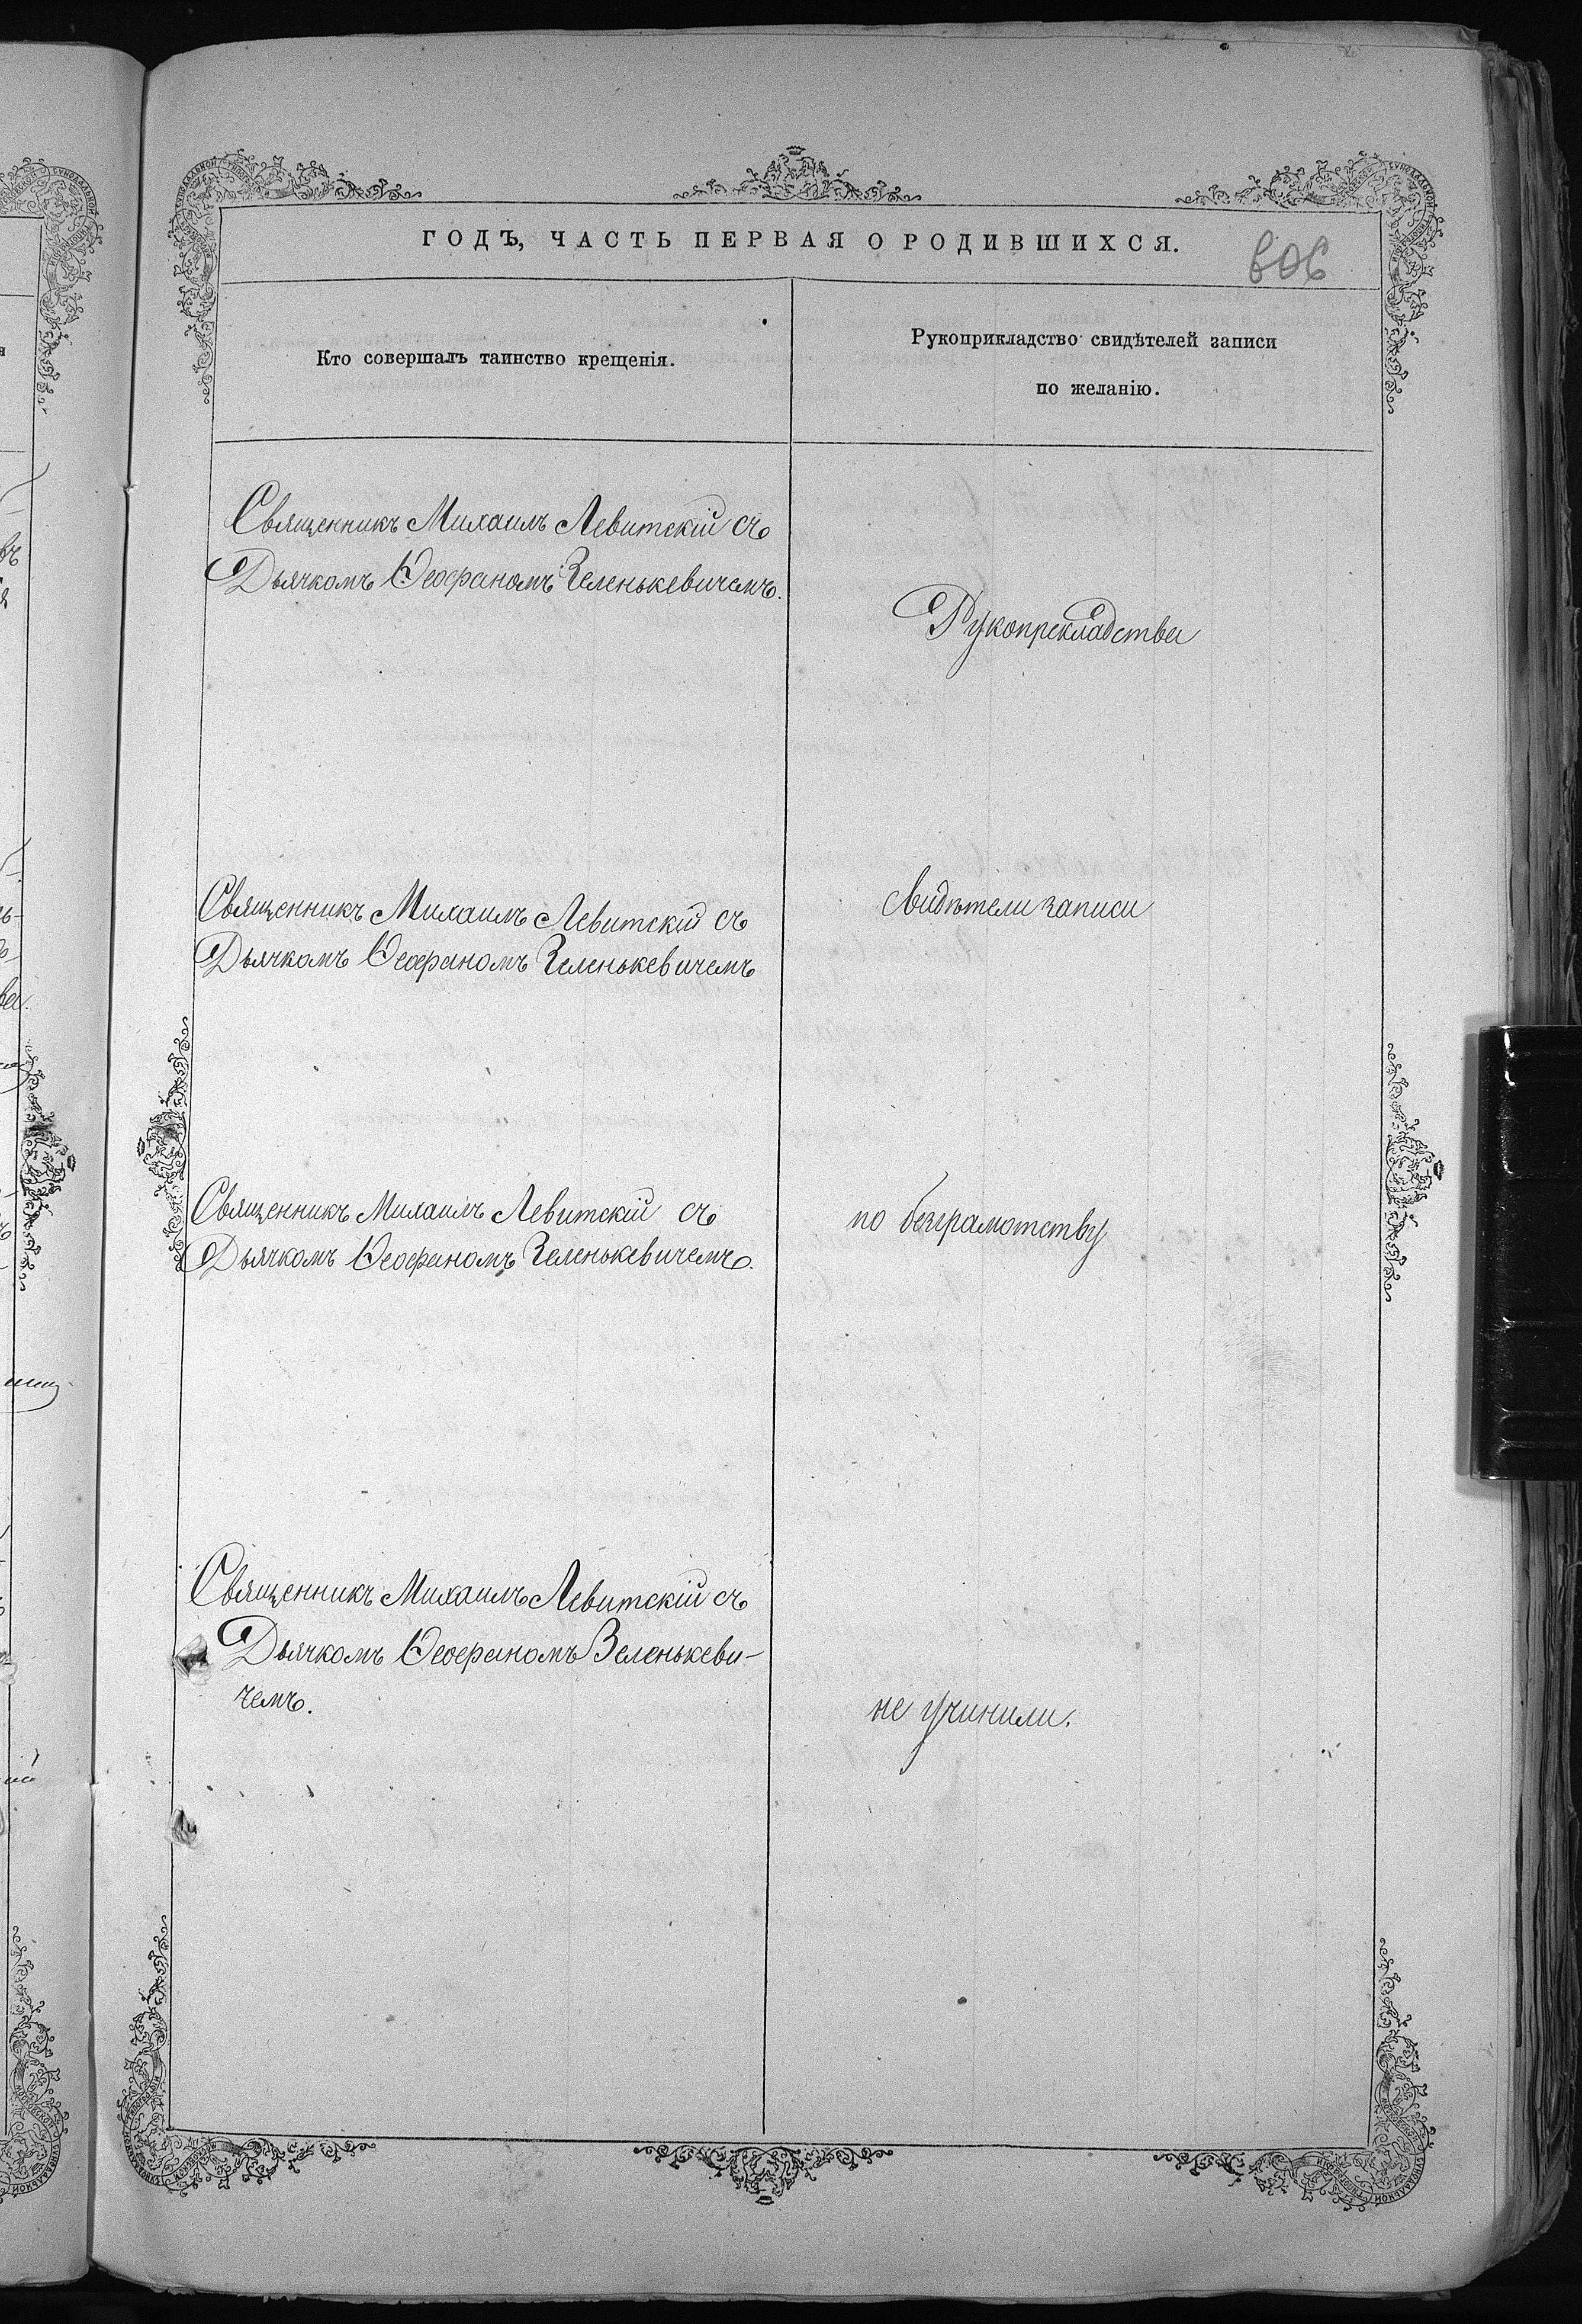 ГОДЪ, ЧАСТЬ ПЕРВАЯ О РОДИВШИХСЯ.
Кто совершалъ таинство крещенія.
Рукоприкладство свидѣтелей записи
по желанію.
Священникъ Михаилъ Левитскій съ
Дьячкомъ Ѳеофаномъ Зеленькевичемъ.
Рукопрекладства
Священникъ Михаилъ Левитскій съ
Дьячкомъ Ѳеофаномъ Зеленькевичемъ
свидѣтели записи
Священникъ Михаилъ Левитскій съ
Дьячкомъ Ѳеофаномъ Зеленькевичемъ.
по безграмотству
Священникъ Михаилъ Левитскій съ
Дьячкомъ Ѳеофаномъ Зеленькеви-
чемъ.
не учинили.